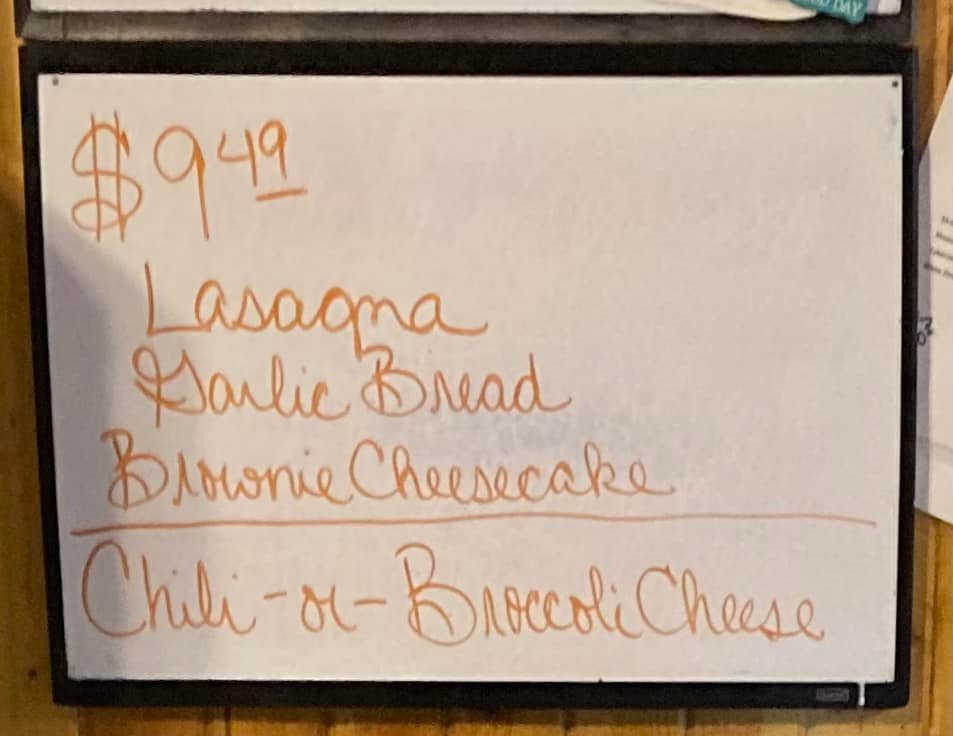 DAY
$9.49
Lasagna
Garlic Bread
Brownie Cheesecake
Chili -or- Broccoli Cheese